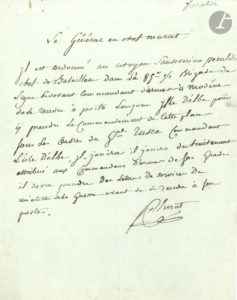 Le Général en chef murat
il est ordonné au citoyen
chef de Bataillon dans la 85e 1/2 Brigade de
Ligne Servant Commandant Darmes a modène
de se rendre a porto Longone isle Délbe pour
y prendre Le Commandement de Cette place
Sous Les Ordres du Gal Rusca Commandant
L'isle Délbe. il jouira du traitement
attribué aux Commandans Darmes de Son Grade
il devra prendre Des Lettres de Service Du
ministre de la Guerre avant de se rendre a Son
poste.
Murat